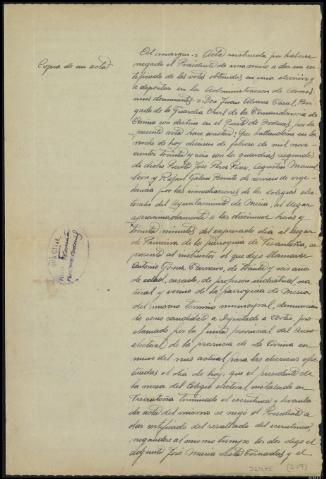 Copia de un acta
Al margen: Acta instruida por haberse
negado el Presidente de una mesa a dar un cer-
tificado de los votos obtenidos en una elección y
a depositar en la Administración de correos
unos documentos = Don Juan Alvarez Casal, Bri-
gada de la Guardia Civil de la Comandancia de
Coruña con destino en el Puesto de Bodeus, por la
presente acta hace constar: Que hallándome en la
noche de hoy dieciseis de febrero de mil nove-
cientos treinta y seis con los guardias segundos
de dicho Puesto José Pena Rey, Agustín
y Rafael Galán Benito de servicio de vigi-
lancia por las inmediaciones de los colegios elec-
torales del Ayuntamiento de Mesía, al llegar
aproximadamente a las diecinueve horas y
treinta minutos del expresado día al lugar
de de la parroquia de Visantoña, se
presentó al instructor el que dijo llamarse
Antonio Gómez Carneiro, de treinta y seis años
de edad, casado, de profesión industrial, na-
tural y vecino de la parroquia de Mesía
del mismo término municipal, denuncian-
do como candidato a Diputado a Cortes pro-
clamado por la Junta provincial del Censo
electoral de la provincia de la Coruña en
nueve del mes actual, para las elecciones efec-
tuadas el día de hoy, que el presidente de
la mesa del Colegio electoral instalado en
Visantoña terminado el escrutinio y levanta-
da acta del mismo se negó el Presidente a
dar certificado del resultado del escrutinio,
negándose al mismo tiempo
adjunto José María Fernández y el
(209)